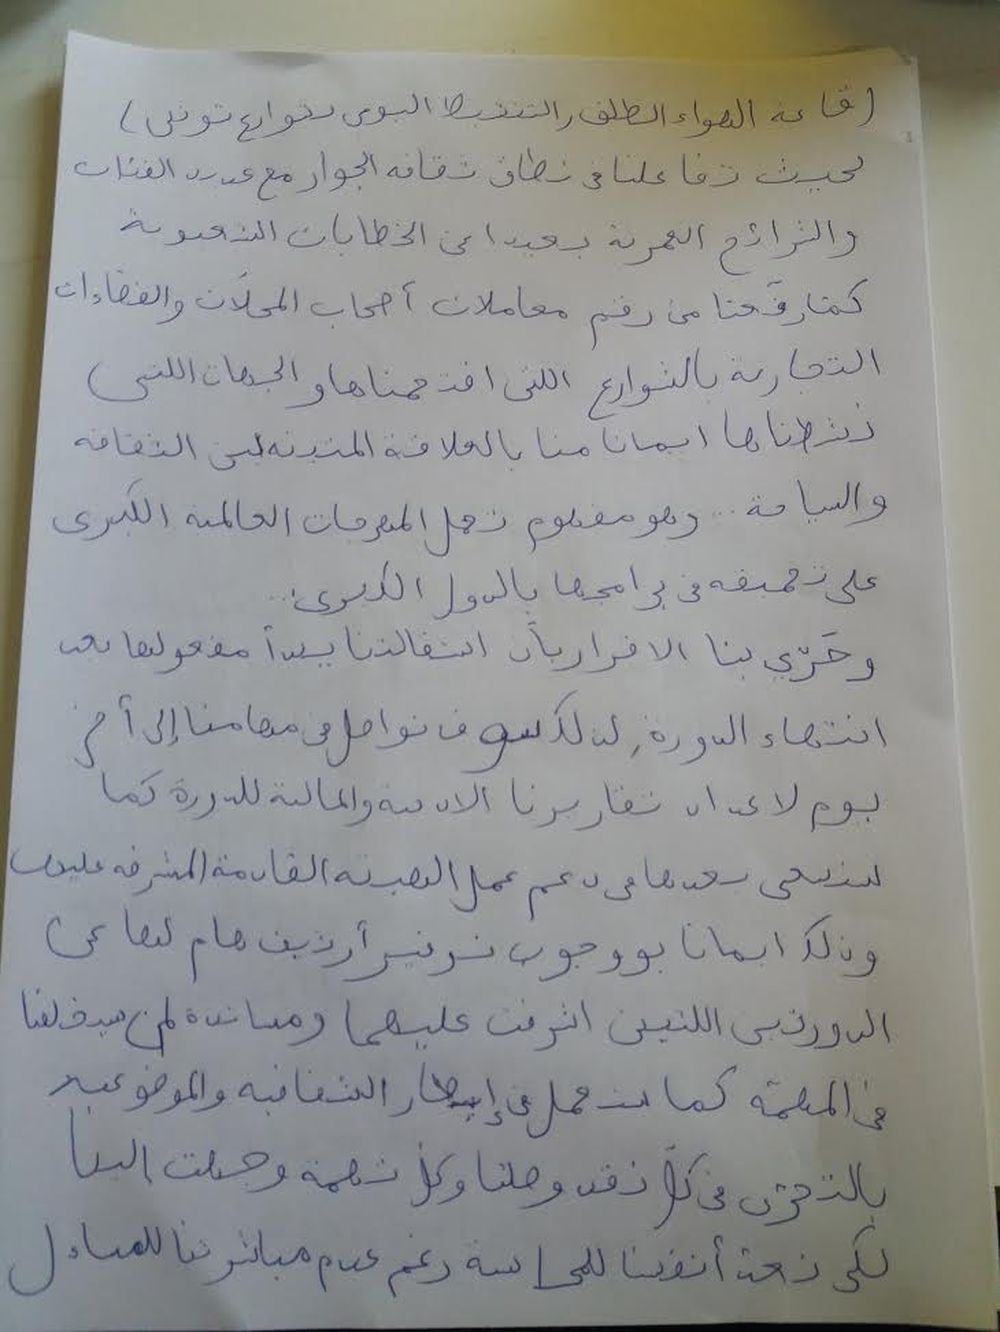 (قاعة الهواء الطلق والتنشيط اليومي بشوارع تونس)
بحيث تفاعلنا في نطاق ثقافة الجوار مع عديد الفئات
والشرائح العمرية بعيدا عن الخطابات الشعبوية
كما رفّعنا من رقم معاملات أصحاب المحلات والفضاءات
التجارية بالشوارع اللتي اقتحمناها والجهات اللتي
نشطناها ايمانا منا بالعلاقة المتينة بين الثقافة
والسياحة.. وهو مفهوم تعمل المهرجانات العالمية الكبرى
على تحقيقه في برامجها بالدول الكبرى..
وحَرّي بنا الاقرار بأن استقالتنا يبدأ مفعولها بعد
انتهاء الدورة, لذلك سوف نواصل في مهامنا إلى أخر
يوم لاعداد تقاريرنا الادبية والمالية للدورة كما
سنسعى بعدها في دعم عمل الهيئة القادمة المشرفة عليها
وذلك ايمانا بووجوب توفير أرشيف هام لها عن
الدورتين اللتين اشرفت عليهما ومساندة لمن سيخلفنا
في المهمّة كما سنعمل في إطار الشفافية والموضوعية
بالتحرّي في كلّ نقد وصلنا وكل تهمة وجهت الينا
لكي نعدّ أنفسنا للمحاسبة رغم عدم مباشرتنا للمسائل